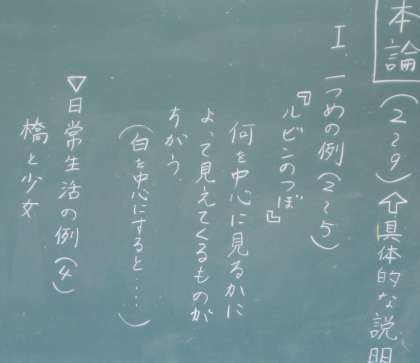 本論(2~9)⇧具体的な説明
I 一つめの例(2~5)
『ルビンのつぼ』
何を中心に見るかに
よって見えてくるものが
ちがう。
(白を中心にすると・・・・)
▽日常生活の例(4)
橋と少女